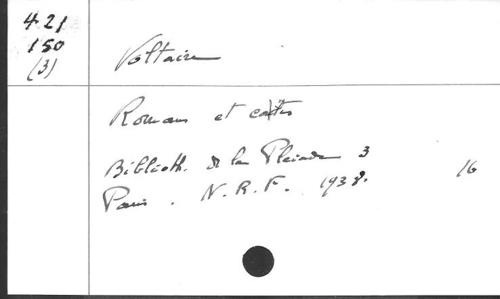 421
150
(3)
Voltaire
Romans et contes
Biblioth. de la Pleiade 3
16
Paris. N.R.F. 1938.